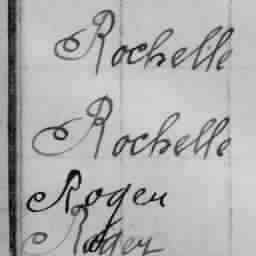 Rochelle
Rochelle
Roger
Roger